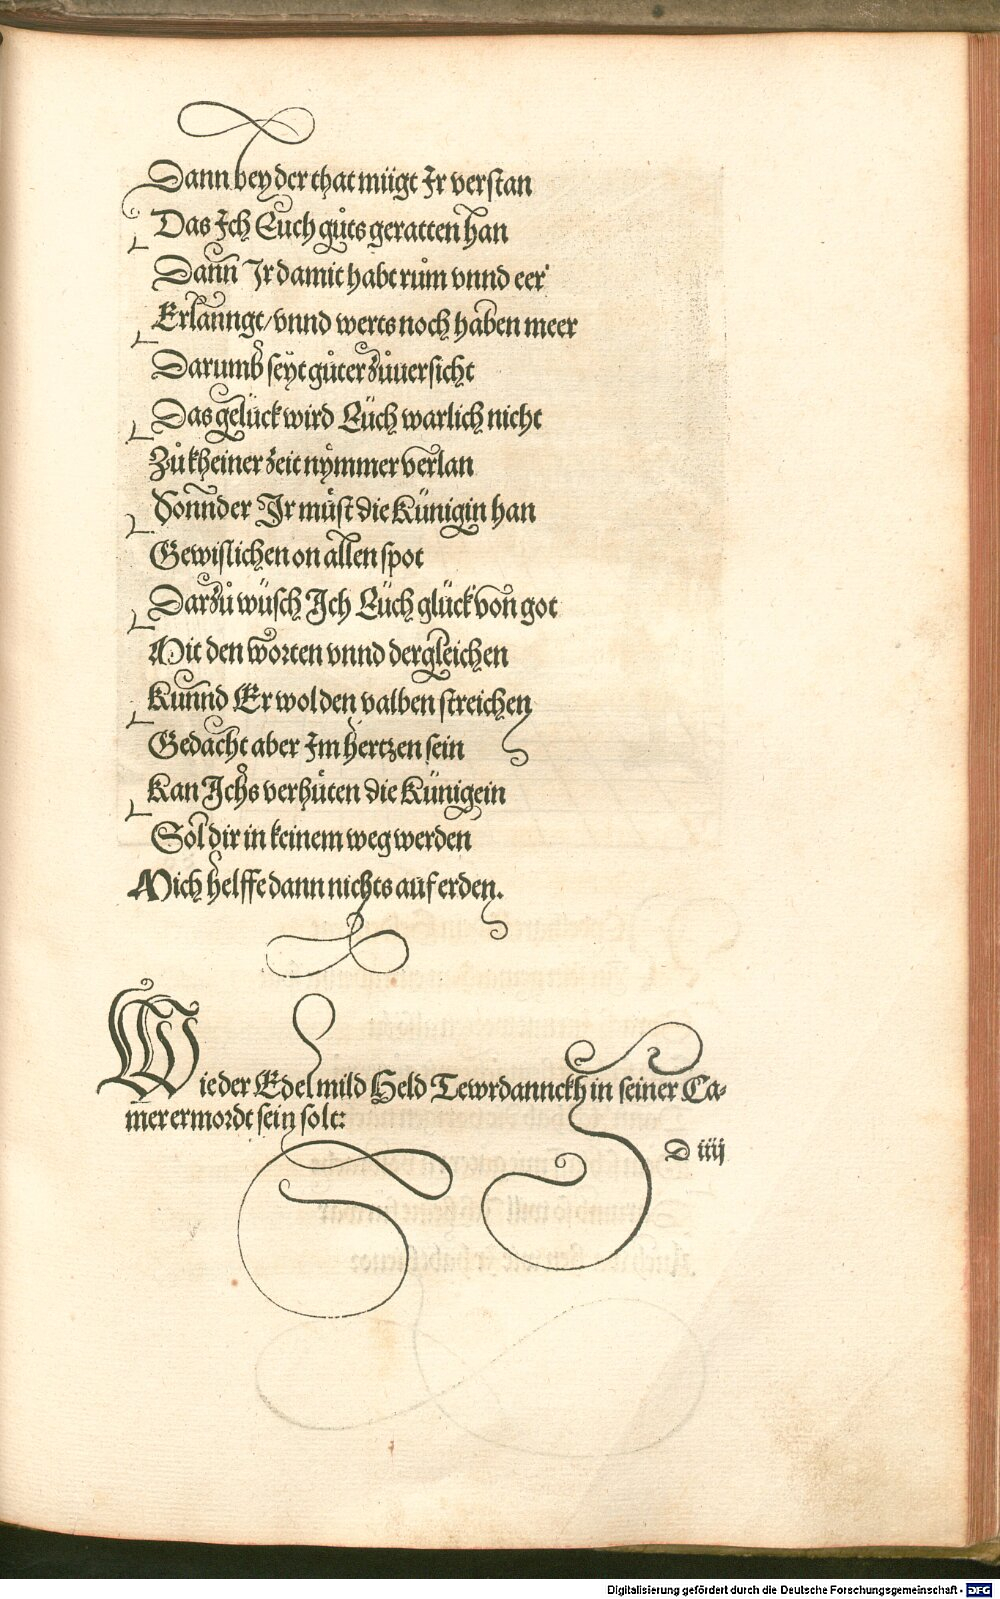 Dann bey der that mügt Ir verstan
Das Ich Euch gůts geratten han
Dann Ir damit habt rům vnnd eer
Erlanngt/vnnd werts noch haben meer
Darumb seyt gůter zůuersicht
Das gelück wird Eüch warlich nicht
Zů kheiner zeit nymmer verlan
Sonnder Ir můst die Künigin han
Gewislichen on allen spot
Darzů wüsch Ich Eüch glück von got
Mit den worten vnnd dergleichen
Kunnd Er wol den valben streichen
Gedacht aber Im hertzen sein
Kan Ichs verhüten die Künigein
Sol dir in keinem weg werden
Mich helffe dann nichts auf erden.
Wie der Edel mild Held Tewrdannckh in seiner Ca-
mer ermordt sein solt:
D iiij
Digitalisierung gefördert durch die Deutsche Forschungsgemeinschaft - DFG